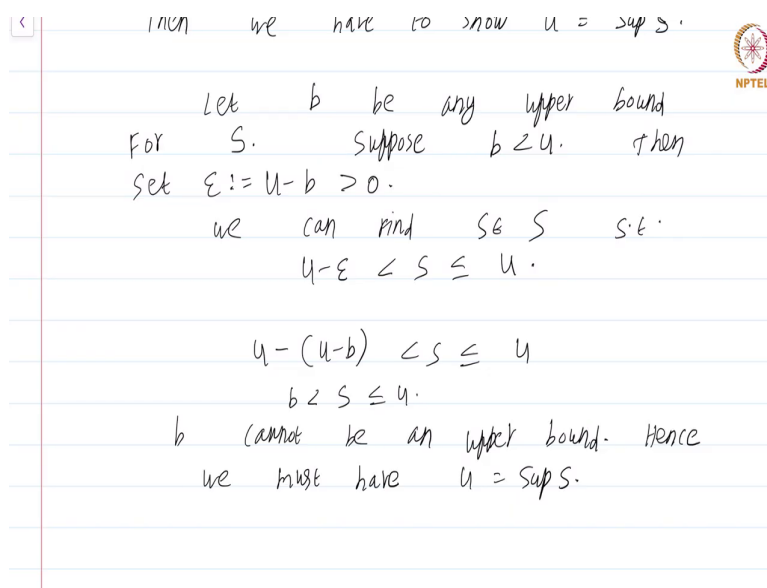 Then we have to show u = sup S.
NPTEL
Let b be any upper bound
For S. Suppose b < u. Then
Set ε := u - b > 0.
we can find s ∈ S s.t.
u - ε < s ≤ u.
u - (u - b) < s ≤ u
b < s ≤ u.
b cannot be an upper bound. Hence
we must have u = sup S.